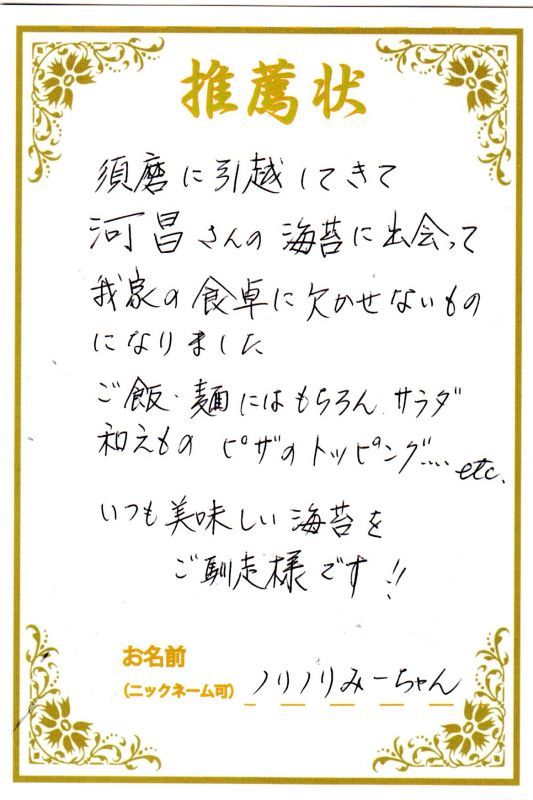 推薦状
須磨に引越してきて
河昌さんの海苔に出会って
我家の食卓に欠かせないもの
になりました
ご飯・麺にはもちろん サラダ
和えもの ピザのトッピング.... etc.
いつも美味しい海苔を
ご馳走様です!!
お名前
(ニックネーム可) ノリノリみーちゃん